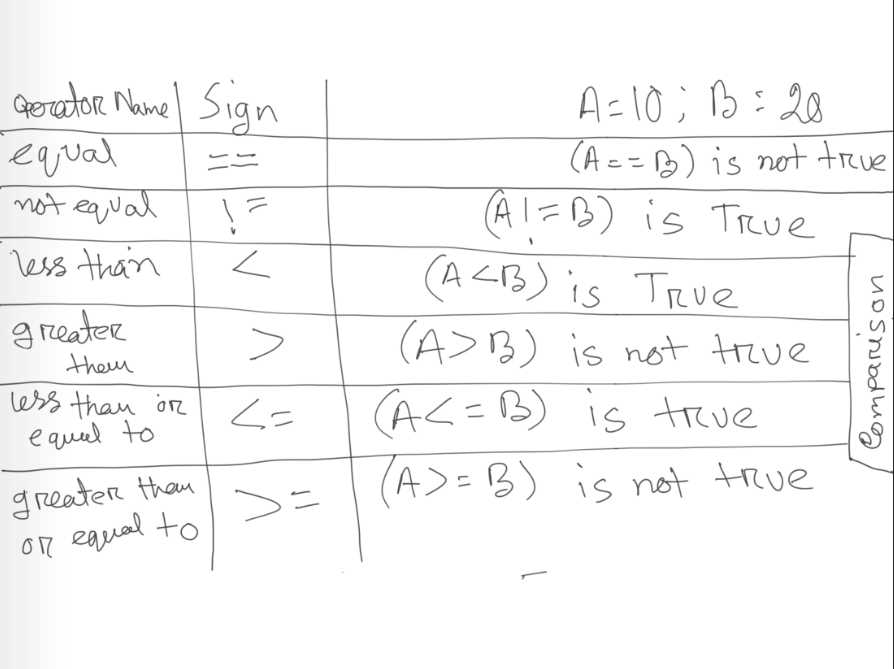 Operator Name Sign A=10 ; B = 20
equal == (A==B) is not true
not equal != (A!=B) is True
less than < (A<B) is True
greater
them > (A>B) is not true
less than or
equal to <= (A<=B) is true
greater them
or equal to >= (A>=B) is not true
Comparison